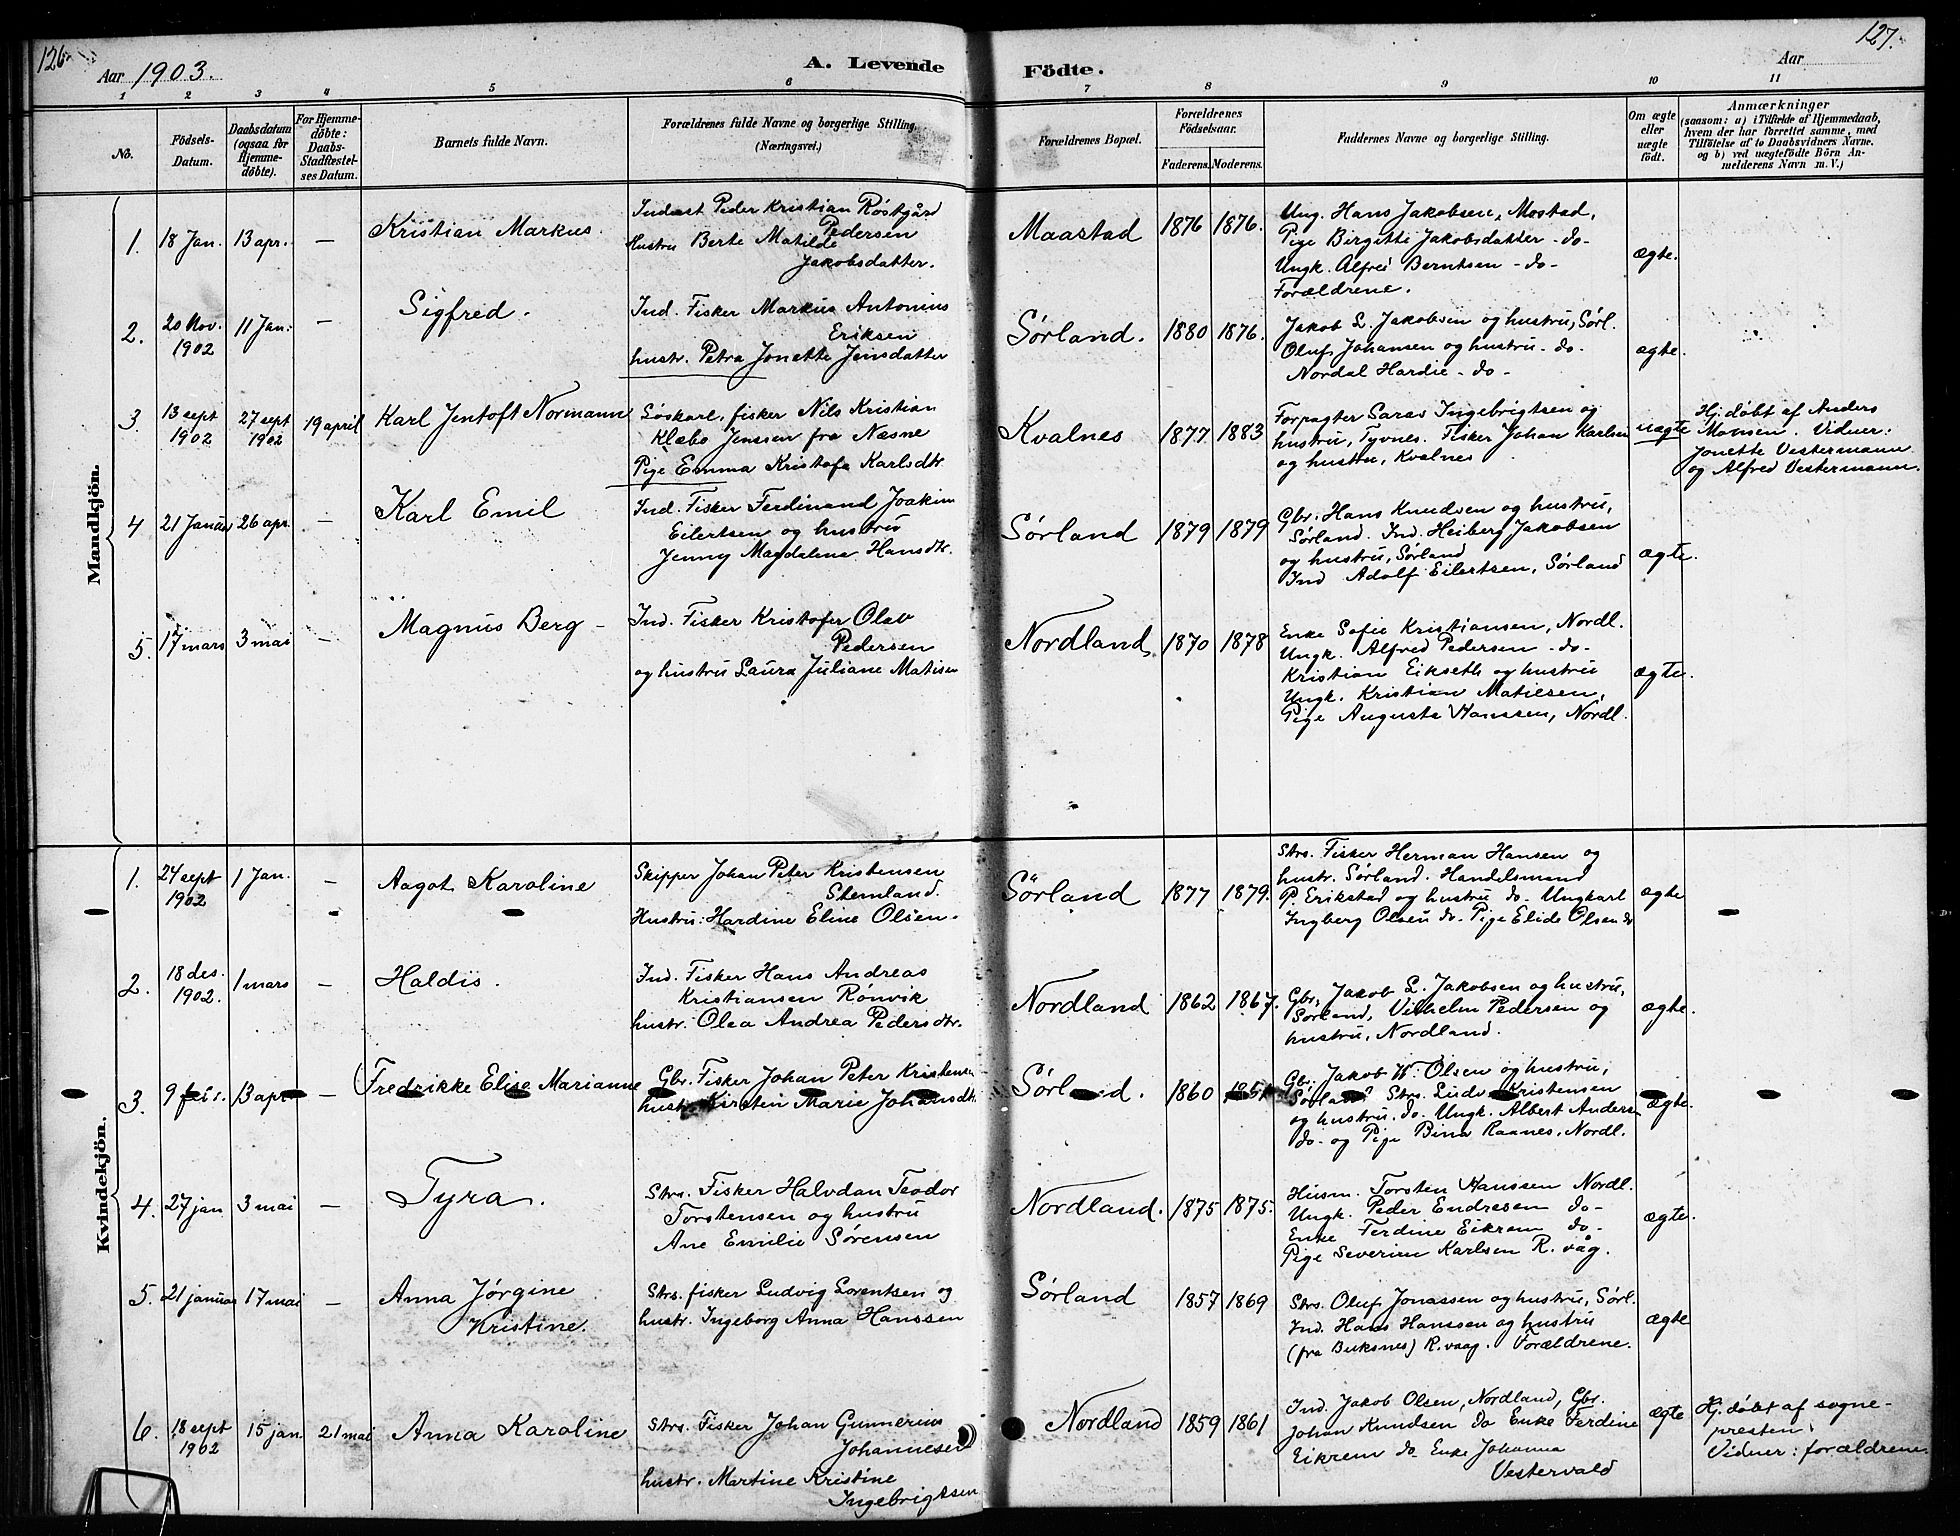 126
127.
Aar 1903.
A. Levende Födte.
Aar
1 2 3 4 5 6 7 8 9 10 11
No.
Födsels-Datum.
Daabsdatum (ogsaa for Hjemme-døbte).
For Hjemme-døbte: Daabs-Stadfæstel-ses Datum.
Barnets fulde Navn.
Forældrenes fulde Navne og borgerlige Stilling. (Næringsvei.)
Forældrenes Bopæl.
Forældrenes Födselsaar.
Faderens. Moderens.
Faddernes Navne og borgerlige Stilling.
Om ægte eller uægte födt.
Anmærkninger
(saasom: a) i Tilfælde af Hjemmedaab,
hvem der har forrettet samme, med
Tilföielse af to Daabsvidners Navne,
og b) ved uægtefödte Börn An-
melderens Navn m. V.)
Mandkjön.
1. 18 Jan. 13 apr. — Kristian Markus.
Inderst Peder Kristian Røstgård
Pedersen
Hustru Berte Matilde
Jakobsdatter.
Maastad 1876 1876.
Ung. Hans Jakobsen, Mostad,
Pige Birgitte Jakobsdatter -do-
Ungk. Alfred Berntsen -do-
Forældrene.
ægte.
2. 20 Nov. 1902 11 Jan. — Sigfred.
Ind. Fisker Markus Antonius
Eriksen
hustr. Petra Jonette Jensdatter
Sørland. 1880 1876.
Jakob L. Jakobsen og hustru, Sørl.
Oluf Johansen og hustru -do-
Nordal Hardie -do-
ægte.
3. 13 sept 1902 27 sept 1902 19 april Karl Jentoft Normann
Løskarl, fisker Nils Kristian
Klæbo Jenssen fra Næsne
Pige Emma Kristofa Karlsdtr.
Kvalnes 1877 1883
Forpagter Saras Ingebrigtsen og
hustru, Tyvnes. Fisker Johan Karlsen
og hustru, Kvalnes
uægte
Hj. døbt af Anders
Monsen. Vidner:
Jonette Vestermann
og Alfred Vestermann.
4 21 Januar 26 apr. — Karl Emil
Ind. Fisker Ferdinand Joakim
Eilertsen og hustru
Jenny Magdalena Hansdtr.
Sørland 1879 1879
Gbr. Hans Knudsen og hustru,
Sørland. Ind. Heiberg Jakobsen
og hustru, Sørland
Ind Adolf Eilertsen, Sørland
ægte.
5. 17 mars 3 mai — Magnus Berg
Ind. Fisker Kristofer Olav
Pedersen
og hustru Laura Juliane Matisen
Nordland. 1870 1878
Enke Sofie Kristiansen, Nordl.
Ungk. Alfred Pedersen -do-
Kristian Eikseth og hustru
Ungk. Kristian Matiesen,
Pige Augusta Hanssen, Nordl.
ægte.
Kvindekjön.
1. 24 sept 1902 1 Jan. — Aagot Karoline
Skipper Johan Peter Kristensen
Stemland.
Hustru: Hardine Eline Olsen.
Sørland 1877 1879.
Strs. Fisker Herman Hansen og
hustr. Sørland. Handelsmand
P. Erikstad og hustru do. Ungkarl
Ingberg Olsen do. Pige Elide Olsen do
ægte
2. 18 des. 1902. 1 mars — Haldis.
Ind. Fisker Hans Andreas
Kristiansen Rønvik
hustr. Olea Andrea Pedersdtr.
Nordland 1862 1867.
Gbr. Jakob L. Jakobsen og hustru,
Sørland, Vilhelm Pedersen og
hustru, Nordland.
ægte.
3. 9 febr. 13 apr — Fredrikke Elise Marianne
Gbr. Fisker Johan Peter Kristensen
hustr. Kirsten Marie Johansdtr.
Sørland. 1860
Gbr. Jakob H. Olsen og hustru,
Sørland. Strs. Ludv. Kristensen
og hustru. do. Ungk. Albert Anders.
do- og Pige Bina Raanes, Nordl.
ægte.
4. 27 jan 3 mai — Tyra.
Strs. Fisker Halvdan Teodor
Torstensen og hustru
Ane Emilie Sørensen
Nordland. 1875 1875.
Husm. Torsten Hanssen Nordl.
Ungk. Peder Endresen do-
Enke Ferdine Eikrem do-
Pige Severine Karlsen R. våg.
ægte.
5. 21 januar 17 mai — Anna Jørgine
Kristine.
Strs. fisker Ludvig Lorentsen og
hustr. Ingeborg Anna Hanssen
Sørland 1857 1869
Strs. Oluf Jonassen og hustru, Sørl.
Ind. Hans Hanssen og hustru
(fra Buksnes) R. vaag. Forældrene.
ægte
6. 18 sept 1902 15 jan. 21 mai Anna Karoline
Strs. Fisker Johan Gunnerius
Johannesen
hustr. Martine Kristine
Ingebrigtsen
Nordland 1859 1861
Ind. Jakob Olsen, Nordland, Gbr.
Johan Knudsen do Enke Ferdine
Eikrem do Enke Johanna
Vestervald
ægte
Hj. døbt af sogne-
presten.
Vidner: forældrene